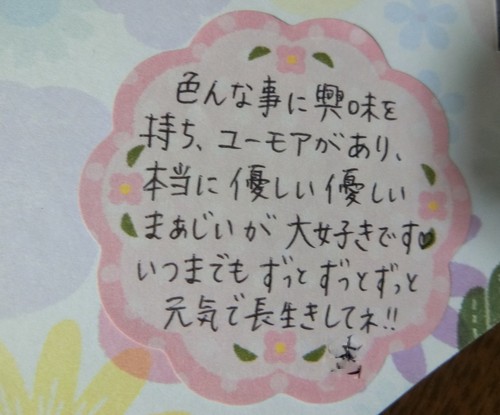 色んな事に興味を
持ち、ユーモアがあり、
本当に優しい優しい
まぁじいが大好きです♡
いつまでもずっとずっとずっと
元気で長生きしてネ!!